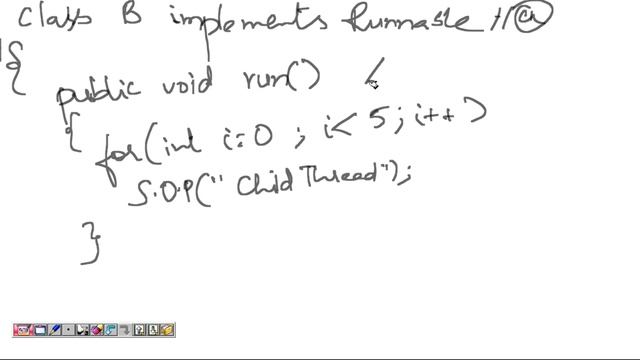 Class B implements Runnable //
{
public void run()
{
for(int i=0 ; i<5; i++)
S.O.P("Child Thread");
}